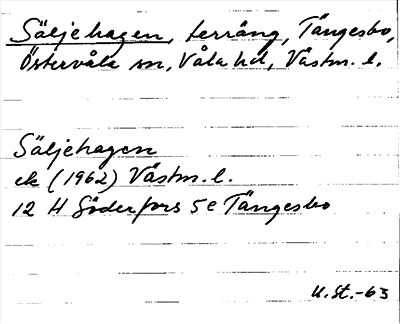 Säljehagen, terräng, Tängesbo,
Östervåla sn, Våla hd, Västm. l.
Säljehagen
ek (1962) Västm. l.
12 H Söderfors 5e Tängesbo
U.St.-63